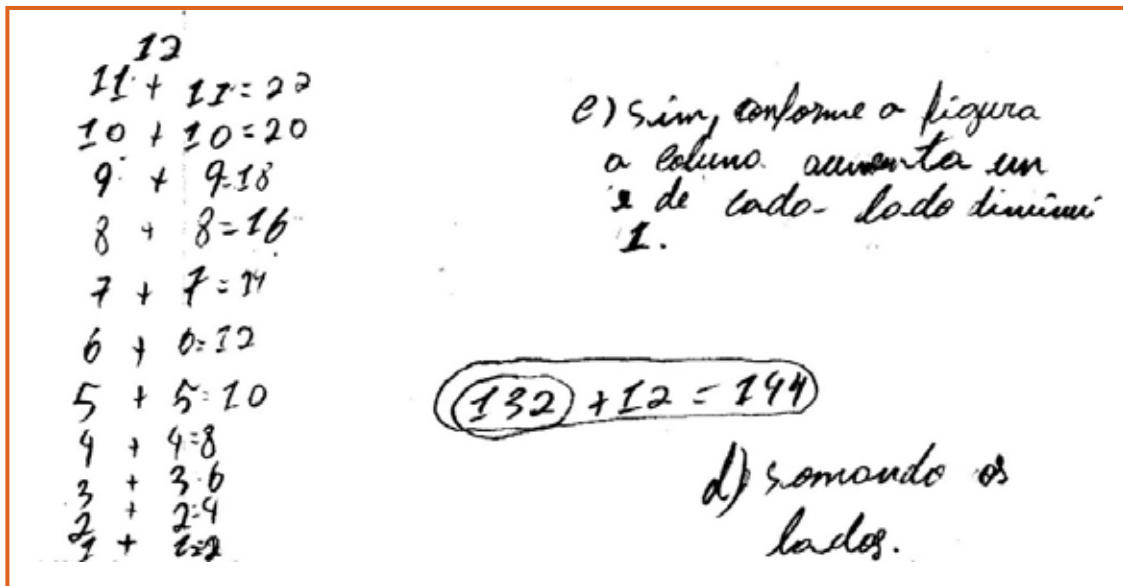 12
11 + 11 = 22
10 + 10 = 20
9 + 9 = 18
8 + 8 = 16
7 + 7 = 14
6 + 6 = 12
5 + 5 = 10
4 + 4 = 8
3 + 3 = 6
2 + 2 = 4
1 + 1 = 2
e) sim, conforme a figura
a coluna aumenta um
e de cada lado diminui
1.
132 + 12 = 144
d) somando os
lados.